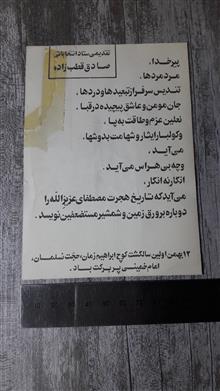 تقدیمی ستاد انتخاباتی
صادق قطب زاده
پیر خدا .
مرد مردها .
تندیس سرفراز تبعیدها و دردها .
جان مومن و عاشق پیچیده در قبا .
نعلین عزم و طاقت به پا .
و کولبار ایثار و شهامت بدوشها .
می آید .
وچه بی هراس می آید .
انگار نه انگار .
می آید که تاریخ هجرت مصطفای عزیز الله را
دوباره بر ورق زمین و شمشیر مستضعفین نویسد .
۱۲ بهمن اولین سالگشت کوچ ابراهیم زمان ، حجت مسلمان ،
امام خمینی پر برکت باد .